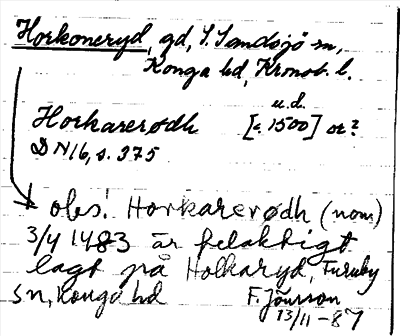 Horkoneryd, gd, S. Sandsjö sn,
Konga hd, Kronob. l.
u.d.
Horkarerødh [c. 1500] or?
DN 16, s. 375
obs! Horkarerødh (nom)
3/4 1483 är felaktigt
lagt på Holkaryd, Furuby
sn, Konga hd F. Jönsson
13/11-87